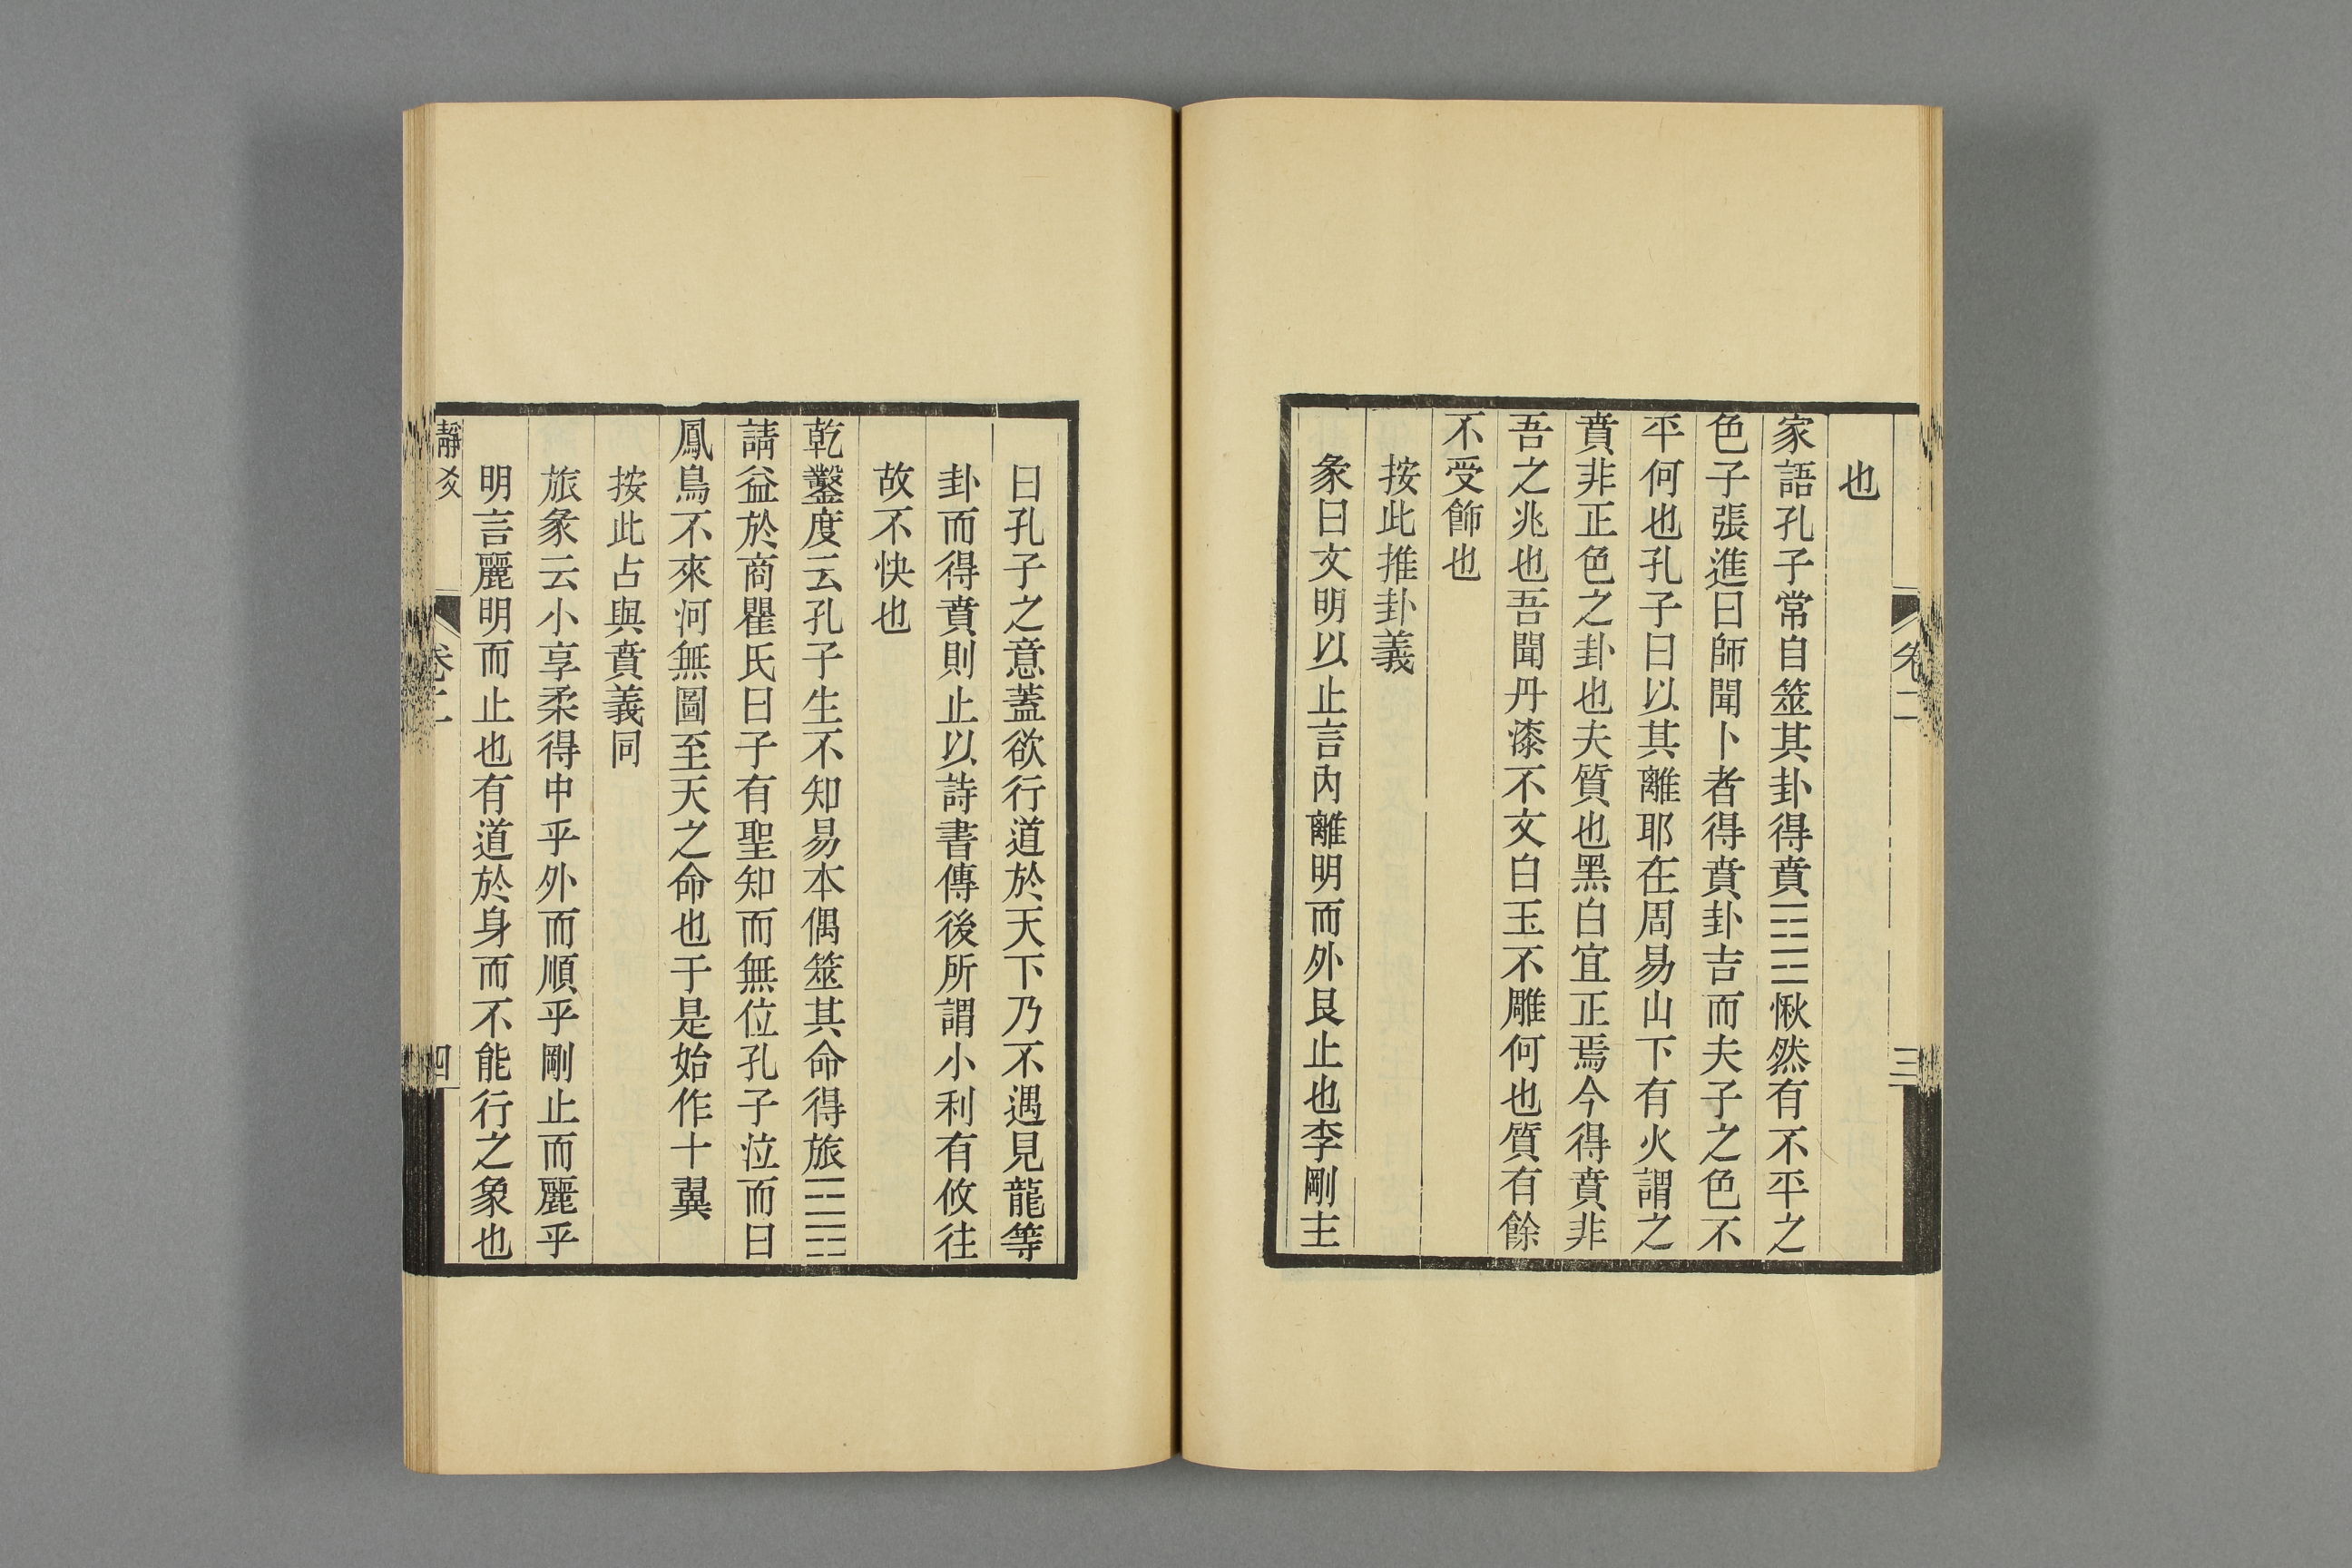 卷二
三
也
家語孔子常自筮其卦得賁☶☲愀然有不平之
色子張進曰師聞卜者得賁卦吉而夫子之色不
平何也孔子曰以其離耶在周易山下有火謂之
賁非正色之卦也夫質也黑白宜正焉今得賁非
吾之兆也吾聞丹漆不文白玉不雕何也質有餘
不受飾也
按此推卦義
彖曰文明以止言內離明而外艮止也李剛主
曰孔子之意蓋欲行道於天下乃不遇見龍等
卦而得賁則止以詩書傳後所謂小利有攸往
故不快也
乾鑿度云孔子生不知易本偶筮其命得旅☲☶
請益於商瞿氏曰子有聖知而無位孔子泣而曰
鳳鳥不來河無圖至天之命也于是始作十翼
按此占與賁義同
旅彖云小享柔得中乎外而順乎剛止而麗乎
明言麗明而止也有道於身而不能行之象也
靜爻
卷二
四